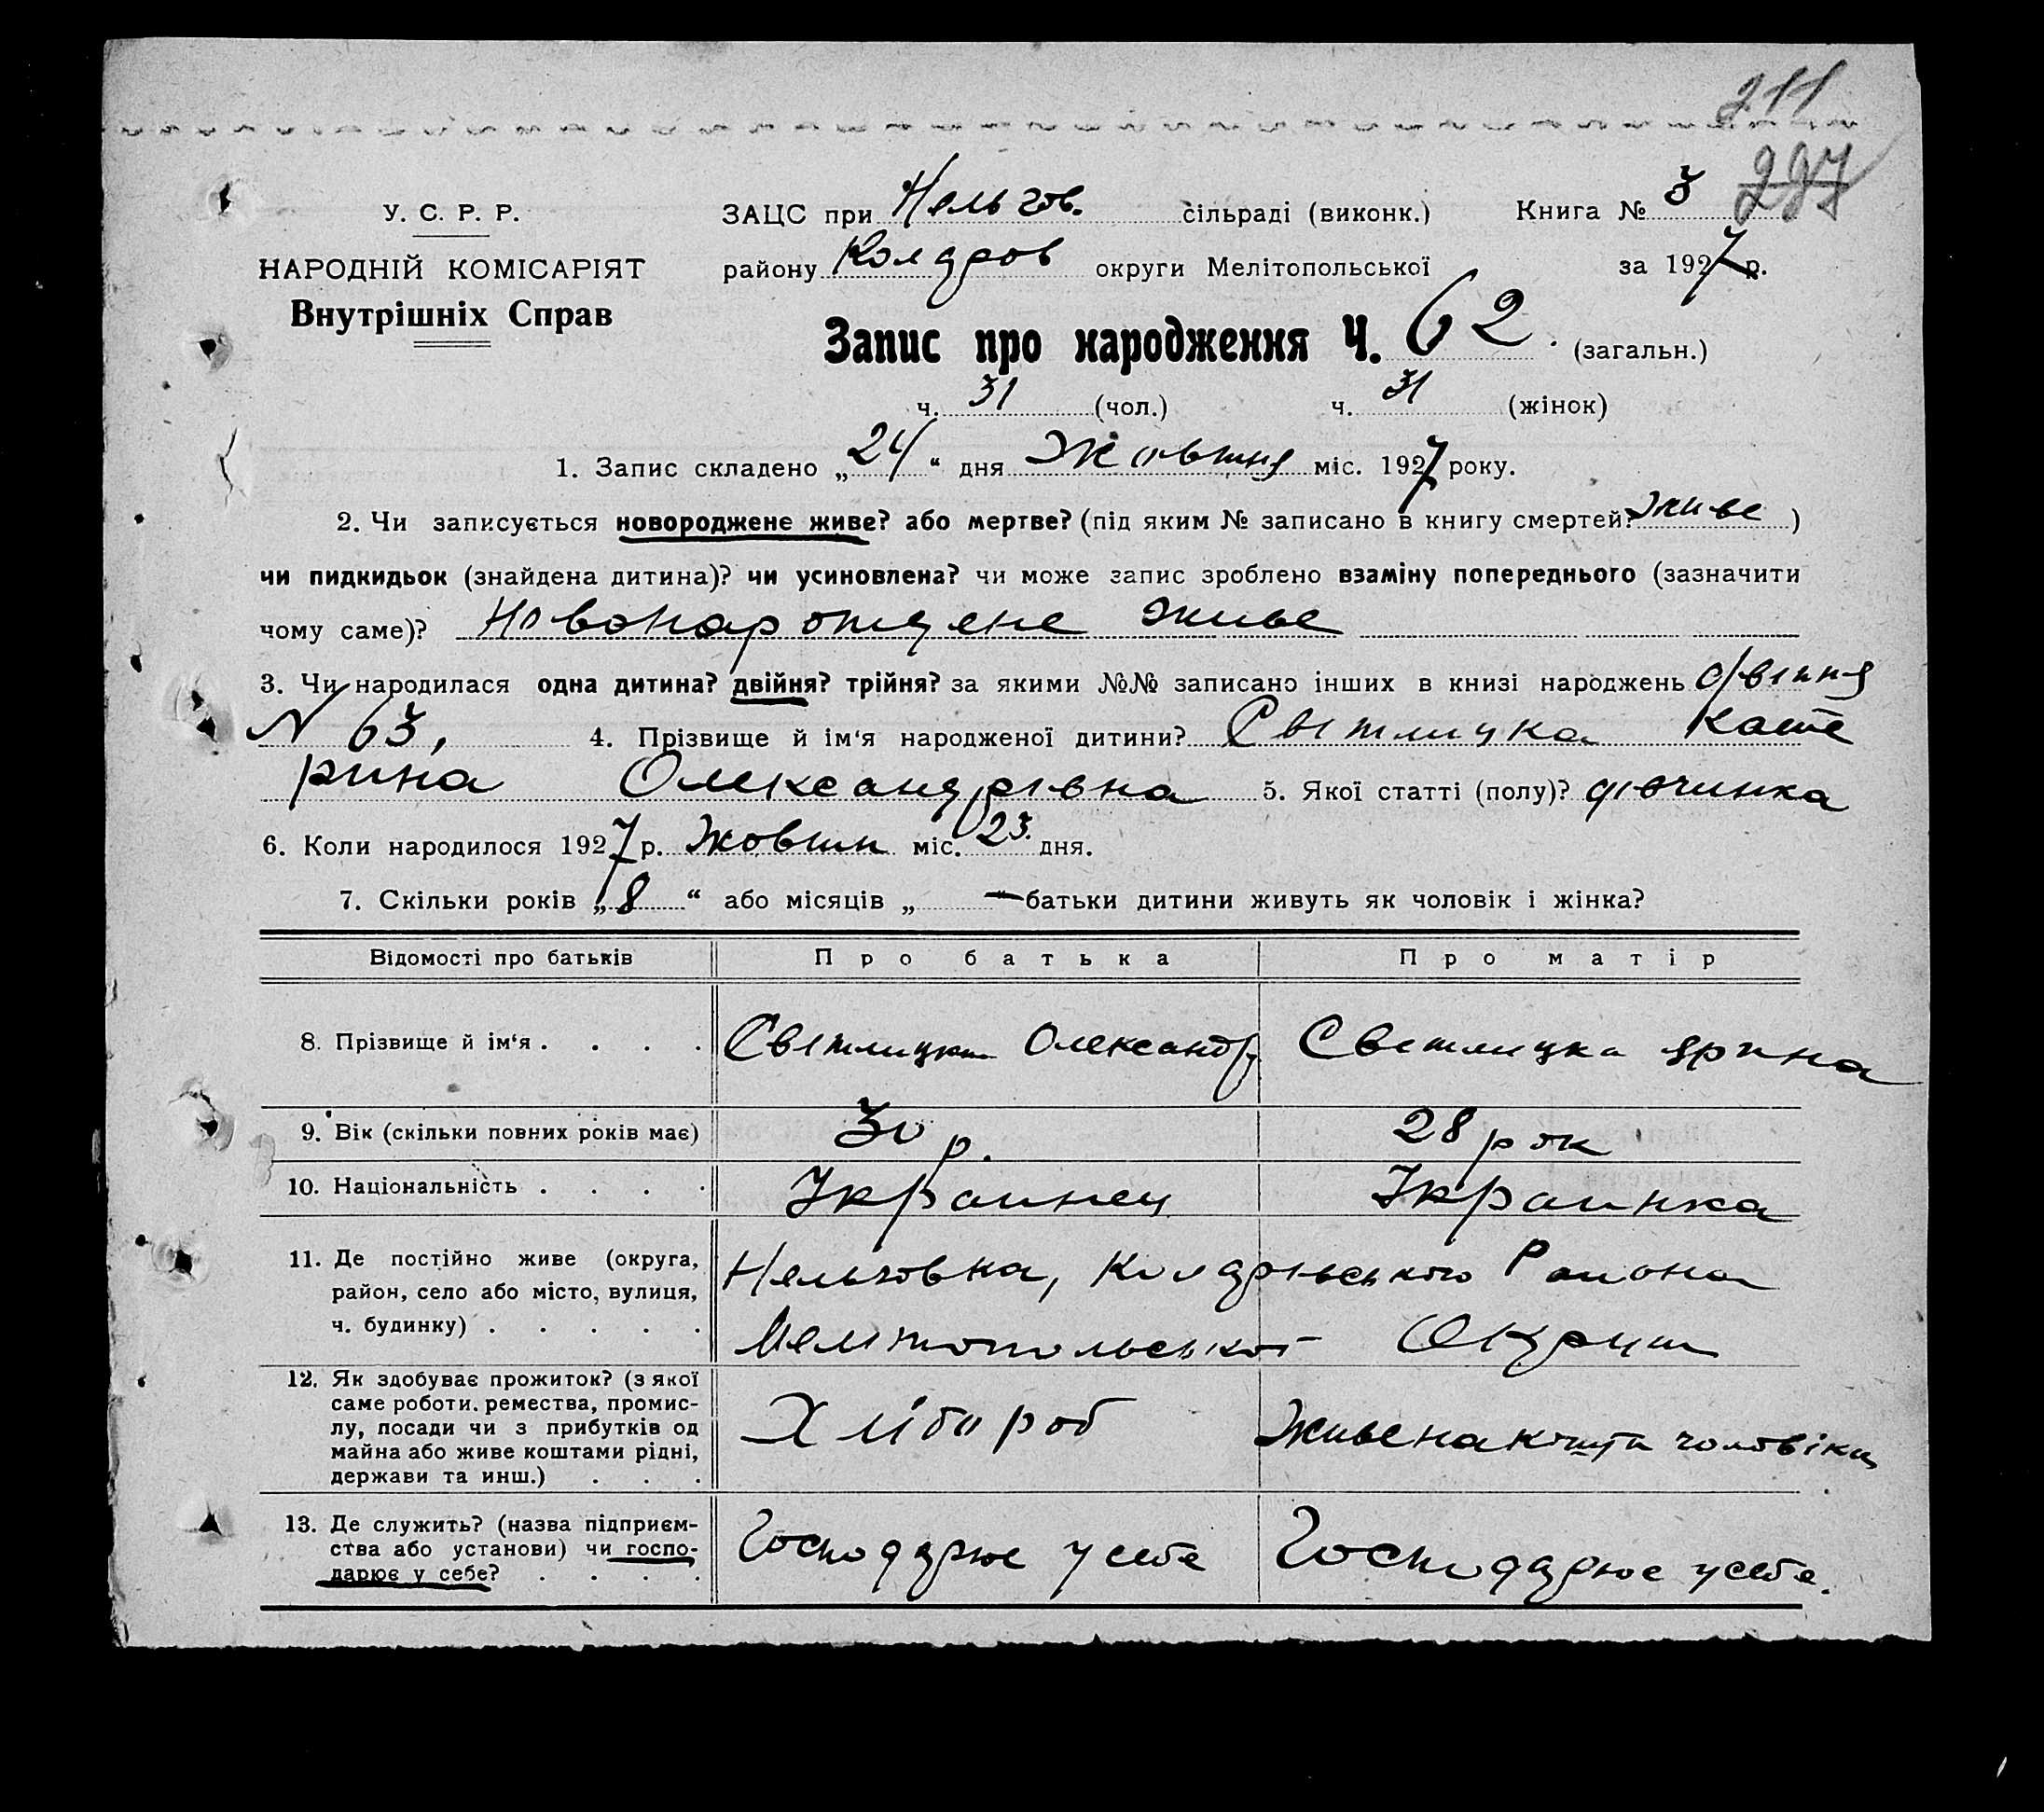 211
У. С. Р. Р. ЗАЦС при Нельгов. сільраді (виконк.) Книга № 3 227
НАРОДНІЙ КОМІСАРІЯТ району Колдров округи Мелітопольської за 1927 р.
Внутрішніх Справ
Запис про народження Ч. 62. (загальн.)
ч. 31 (чол.) ч. 31 (жінок)
1. Запис складено „24“ дня Жовтня міс. 1927 року.
2. Чи записується новороджене живе? або мертве? (під яким № записано в книгу смертей? живе)
чи пидкидьок (знайдена дитина)? чи усиновлена? чи може запис зроблено взаміну попереднього (зазначити
чому саме)? Новонарожцене живе
3. Чи народилася одна дитина? двійня? трійня? за якими №№ записано інших в книзі народжень двіння
N 63, 4. Прізвище й ім‘я народженої дитини? Світлицка Кате
рина Олександрівна 5. Якої статті (полу)? дівчинка
6. Коли народилося 1927 р. Жовтн міс. 23 дня.
7. Скільки років „8“ або місяців „ — “ батьки дитини живуть як чоловік і жінка?
Відомості про батьків Про батька Про матір
8. Прізвище й ім‘я . . . . Світлицки Олександр Светлицка Ярина
9. Вік (скільки повних років має) 30 р. 28 рок
10. Національність . . . . Украинец Украинка
11. Де постійно живе (округа,
район, село або місто, вулиця,
ч. будинку) . . . . .
Нельговка, Колдрівського Района
Мелітопольської Округи
12. Як здобуває прожиток? (з якої
саме роботи. ремества, промис-
лу, посади чи з прибутків од
майна або живе коштами рідні,
держави та инш.) . . .
Хлібороб Живе на кошти чоловіка
13. Де служить? (назва підприєм-
ства або установи) чи госпо-
дарює у себе? . . . .
Господарює у себе Господарює у себе.